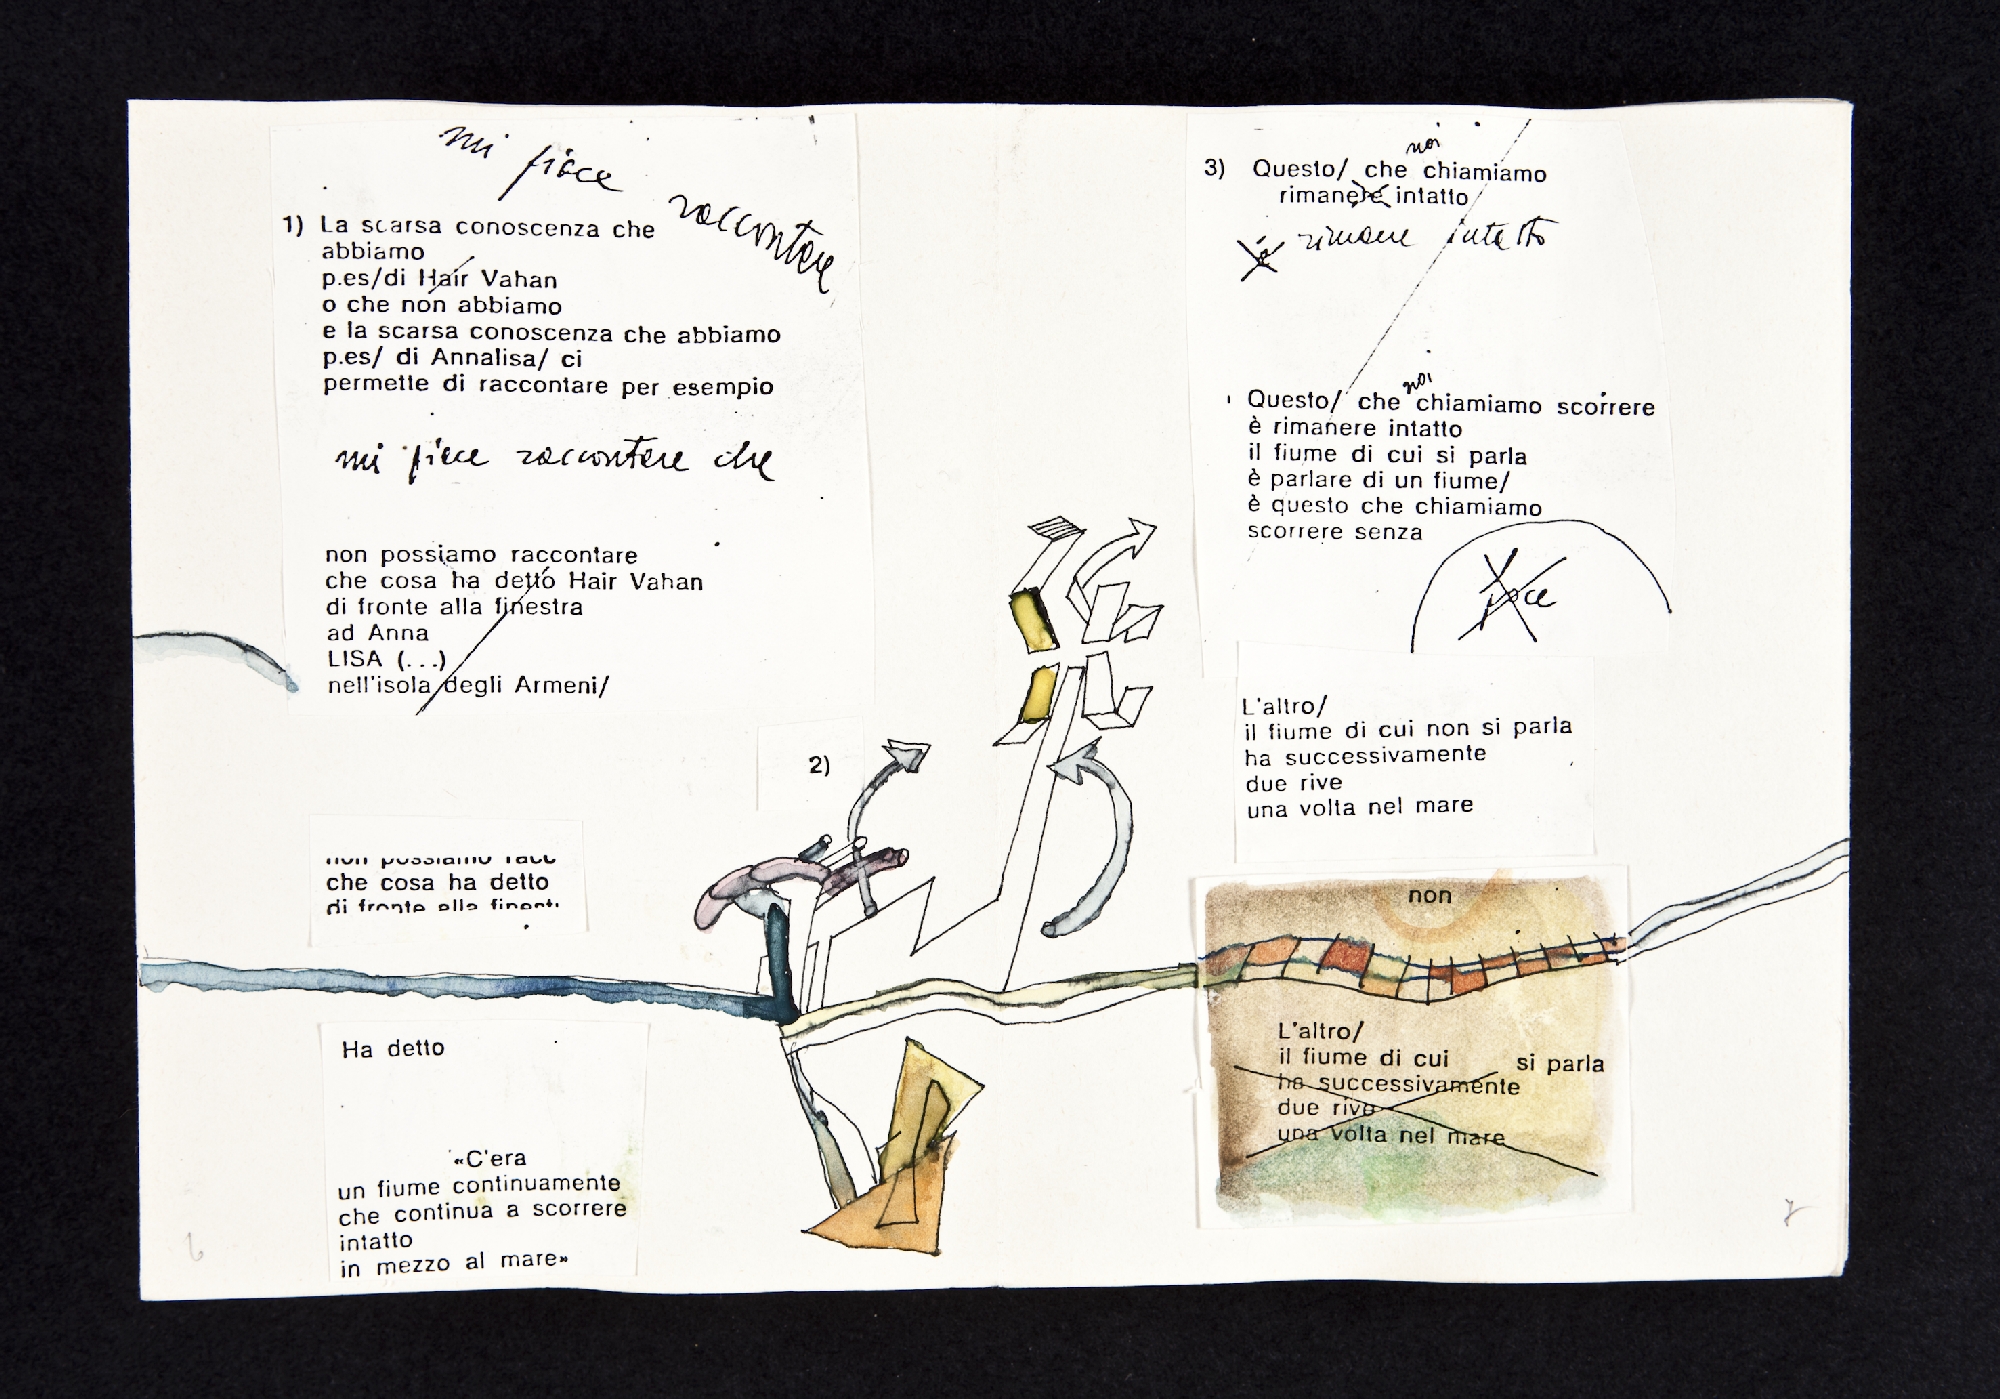 mi piace raccontare
1) La scarsa conoscenza che
abbiamo
p.es/di Hair Vahan
o che non abbiamo
e la scarsa conoscenza che abbiamo
p.es/ di Annalisa/ ci
permette di raccontare per esempio
mi piace raccontare che
non possiamo raccontare
che cosa ha detto Hair Vahan
di fronte alla finestra
ad Anna
LISA (...)
nell'isola degli Armeni/
2)
non possiamo racc
che cosa ha detto
di fronte alla finest
Ha detto
«C'era
un fiume continuamente
che continua a scorrere
intatto
in mezzo al mare»
6
noi
3) Questo/ che chiamiamo
rimanere intatto
è rimane intatto
noi
Questo/ che chiamiamo scorrere
è rimanere intatto
il fiume di cui si parla
è parlare di un fiume/
è questo che chiamiamo
scorrere senza
foce
L'altro/
il fiume di cui non si parla
ha successivamente
due rive
una volta nel mare
non
L'altro/
il fiume di cui si parla
ha successivamente
due rive
una volta nel mare
7